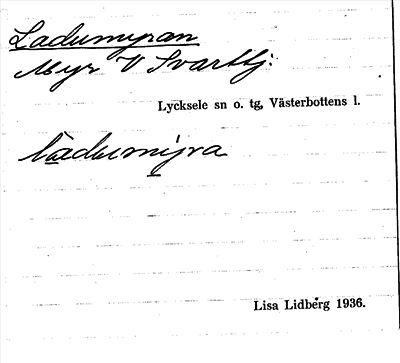 Ladumyran
Myr V Svarttj.
Lycksele sn o. tg, Västerbottens l.
làdumyra
Lisa Lidberg 1936.